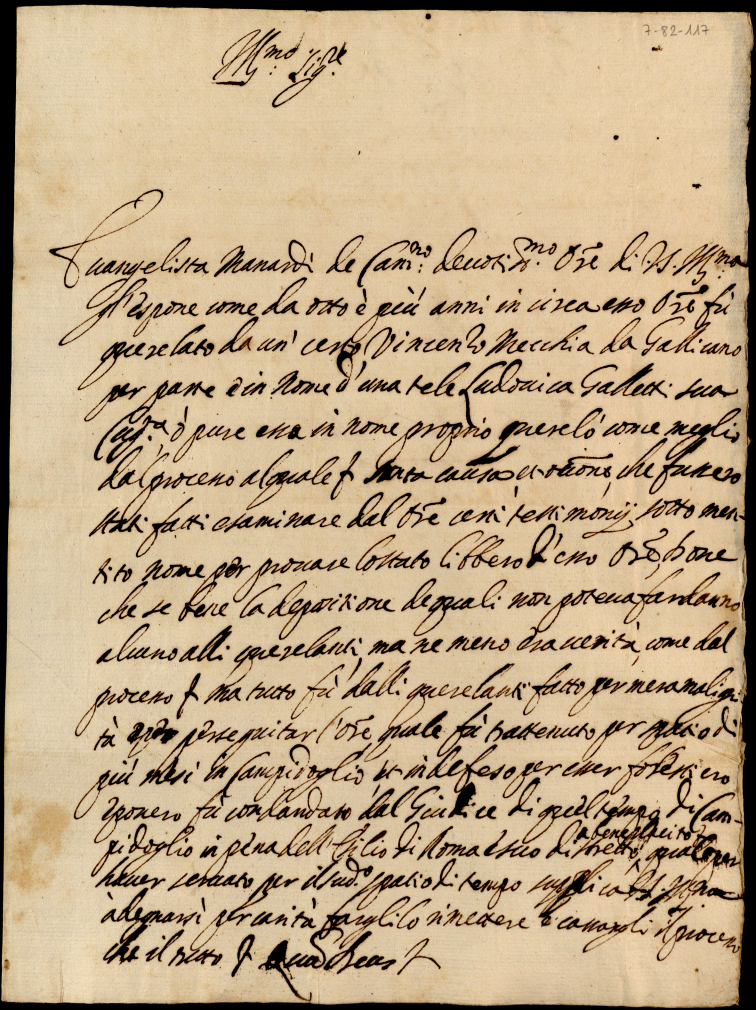 7-82-117
Ill.mo Sig.re
Euangelista Manardi de Cam.no deuotiss.mo Ore di V.S. Ill.ma
gl'espone come da otto è più anni in circa esso Ore fù
querelato da un' certo Vincenzo Mecchia da Gallicano
per parte è in nome d'una tele Ludouica Galletti sua
Cug.a ò pure essa in nome proprio querelò come meglio
dal processo al quale causa et occasione, che fussero
stati fatti esaminare dal Ore certi testimonij sotto men-
tito nome per prouare lo stato libbero d'esso Ore
che se bene la depositione de quali non poteua far danno
alcuno alli querelanti, ma ne meno era uerità, come dal
processo ma tutto fù dalli querelanti fatto per mera maligni
tà per perseguitar l'Ore quale fù trattenuto per spatio di
più mesi in Campidoglio et indefeso per esser forestiero
è pouero fù condandato dal Giudice di quel tempo di Cam-
pidoglio in pena dell'Esilio di Roma è suo distretto, a beneplacito quale per
hauer seruato per il sud.o spatio di tempo supplica V.S. Ill.ma
à degnarsi per carità farglilo rimettere è cassargli il processo
che il tutto Quam Deus